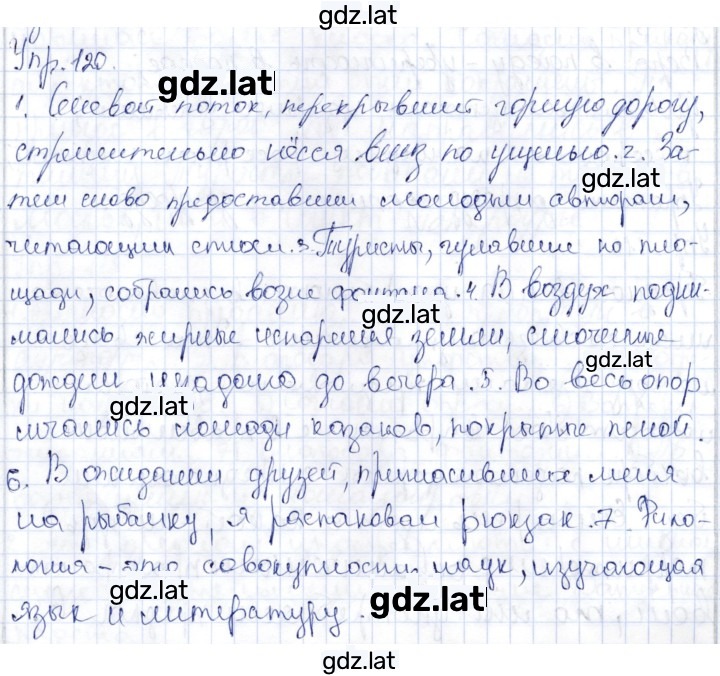 gdz.lat
Упр. 120.
gdz.lat
1. Селевой поток, перекрывший горную дорогу,
стремительно нёсся вниз по ущелью. 2. За-
gdz.lat
тем слово предоставили молодым авторам,
читающим стихи. 3. Туристы, гулявшие по пло-
щади, собрались возле фонтана. 4. В воздух подни-
gdz.lat
мались жирные испарения земли, смоченные
gdz.lat
дождём незадолго до вечера. 5. Во весь опор
gdz.lat
мчались лошади казаков, покрытые пеной.
6. В ожидании друзей, пригласивших меня
на рыбалку, я распаковал рюкзак. 7. Фило-
логия - это совокупность наук, изучающая
gdz.lat
gdz.lat
язык и литературу.
gdz.lat